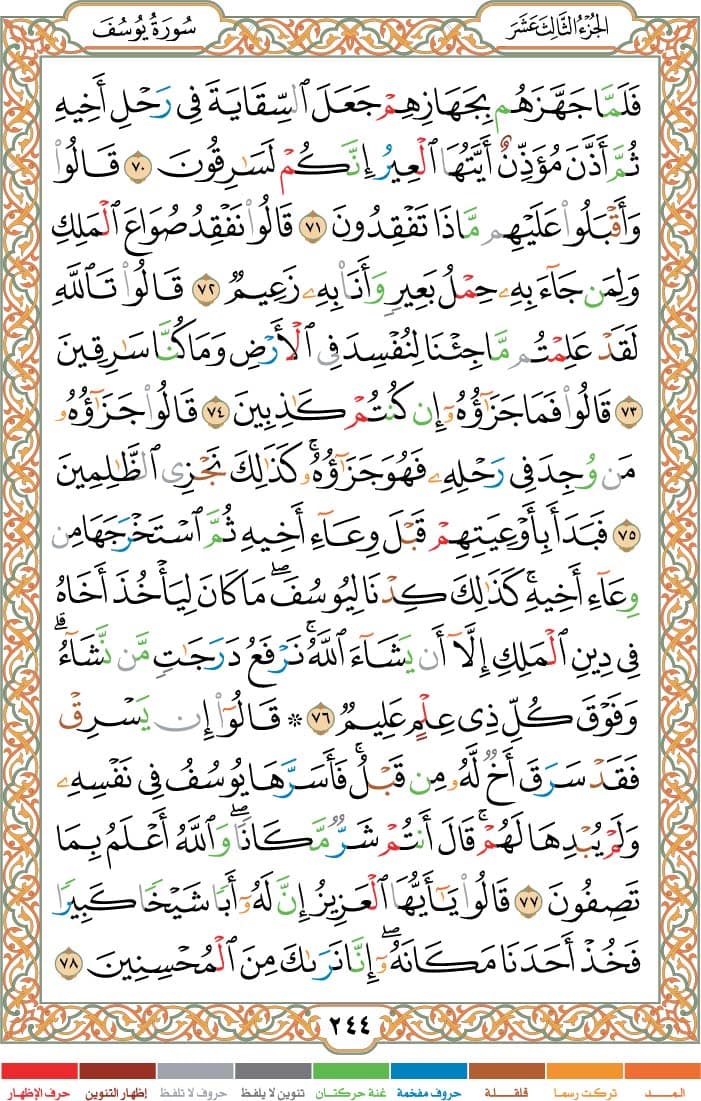 الجُزْءُ الثَّالِثَ عَشَرَ
سُورَةُ يُوسُفَ
فَلَمَّا جَهَّزَهُم بِجَهَازِهِمْ جَعَلَ ٱلسِّقَايَةَ فِى رَحْلِ أَخِيهِ
ثُمَّ أَذَّنَ مُؤَذِّنٌ أَيَّتُهَا ٱلْعِيرُ إِنَّكُمْ لَسَٰرِقُونَ ٧٠ قَالُوا۟
وَأَقْبَلُوا۟ عَلَيْهِم مَّاذَا تَفْقِدُونَ ٧١ قَالُوا۟ نَفْقِدُ صُوَاعَ ٱلْمَلِكِ
وَلِمَن جَآءَ بِهِۦ حِمْلُ بَعِيرٍ وَأَنَا۠ بِهِۦ زَعِيمٌ ٧٢ قَالُوا۟ تَٱللَّهِ
لَقَدْ عَلِمْتُم مَّا جِئْنَا لِنُفْسِدَ فِى ٱلْأَرْضِ وَمَا كُنَّا سَٰرِقِينَ
٧٣ قَالُوا۟ فَمَا جَزَٰٓؤُهُۥٓ إِن كُنتُمْ كَٰذِبِينَ ٧٤ قَالُوا۟ جَزَٰٓؤُهُۥ
مَن وُجِدَ فِى رَحْلِهِۦ فَهُوَ جَزَٰٓؤُهُۥ ۚ كَذَٰلِكَ نَجْزِى ٱلظَّٰلِمِينَ
٧٥ فَبَدَأَ بِأَوْعِيَتِهِمْ قَبْلَ وِعَآءِ أَخِيهِ ثُمَّ ٱسْتَخْرَجَهَا مِن
وِعَآءِ أَخِيهِ ۚ كَذَٰلِكَ كِدْنَا لِيُوسُفَ ۖ مَا كَانَ لِيَأْخُذَ أَخَاهُ
فِى دِينِ ٱلْمَلِكِ إِلَّآ أَن يَشَآءَ ٱللَّهُ ۚ نَرْفَعُ دَرَجَٰتٍ مَّن نَّشَآءُ ۗ
وَفَوْقَ كُلِّ ذِى عِلْمٍ عَلِيمٌ ٧٦ ۞ قَالُوٓا۟ إِن يَسْرِقْ
فَقَدْ سَرَقَ أَخٌ لَّهُۥ مِن قَبْلُ ۚ فَأَسَرَّهَا يُوسُفُ فِى نَفْسِهِۦ
وَلَمْ يُبْدِهَا لَهُمْ ۚ قَالَ أَنتُمْ شَرٌّ مَّكَانًا ۖ وَٱللَّهُ أَعْلَمُ بِمَا
تَصِفُونَ ٧٧ قَالُوا۟ يَٰٓأَيُّهَا ٱلْعَزِيزُ إِنَّ لَهُۥٓ أَبًا شَيْخًا كَبِيرًا
فَخُذْ أَحَدَنَا مَكَانَهُۥٓ ۖ إِنَّا نَرَىٰكَ مِنَ ٱلْمُحْسِنِينَ ٧٨
٢٤٤
المـــد
تركت رسما
قلقـــلة
حروف مفخمة
غنة حركتان
تنوين لا يلفظ
حروف لا تلفظ
إظهار التنوين
حرف الإظهار